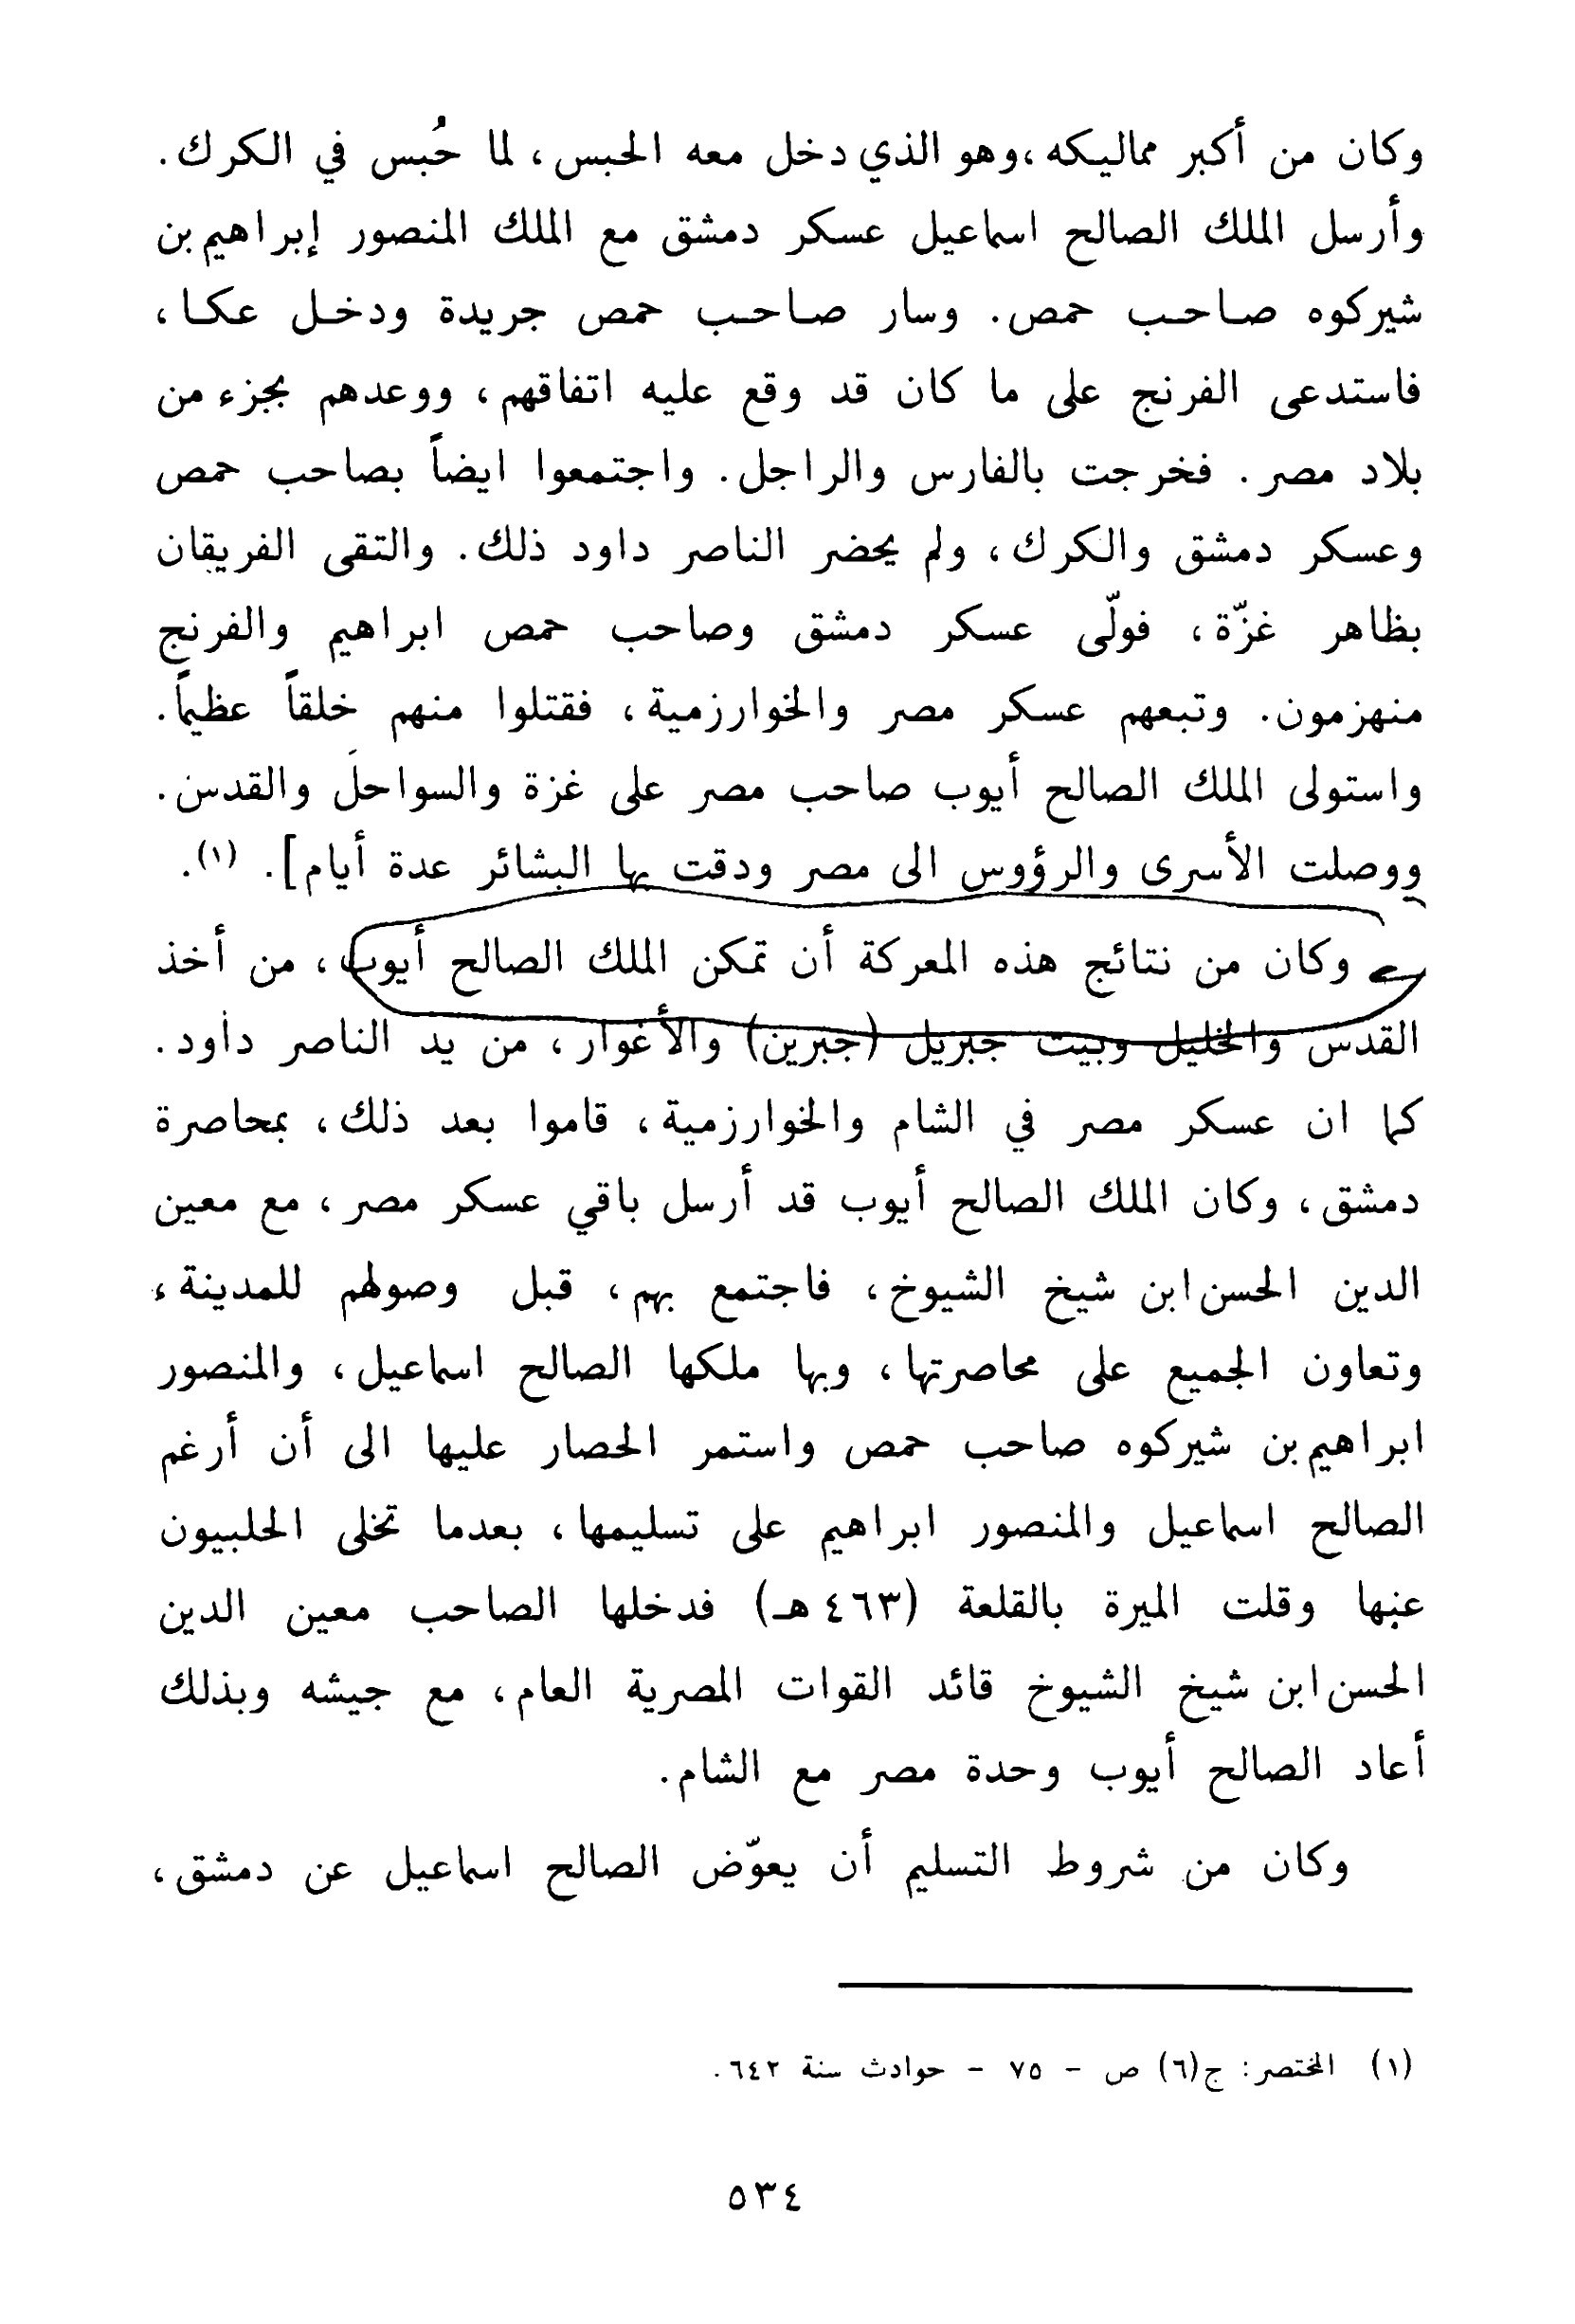 وكان من أكبر مماليكه، وهو الذي دخل معه الحبس، لما حُبس في الكرك.
وأرسل الملك الصالح اسماعيل عسكر دمشق مع الملك المنصور إبراهيم بن
شيركوه صاحب حمص. وسار صاحب حمص جريدة ودخل عكا،
فاستدعى الفرنج على ما كان قد وقع عليه اتفاقهم، ووعدهم بجزء من
بلاد مصر. فخرجت بالفارس والراجل. واجتمعوا ايضاً بصاحب حمص
وعسكر دمشق والكرك، ولم يحضر الناصر داود ذلك. والتقى الفريقان
بظاهر غزّة، فولّى عسكر دمشق وصاحب حمص ابراهيم والفرنج
منهزمون. وتبعهم عسكر مصر والخوارزمية، فقتلوا منهم خلقاً عظيماً.
واستولى الملك الصالح أيوب صاحب مصر على غزة والسواحل والقدس.
ووصلت الأسرى والرؤوس الى مصر ودقت بها البشائر عدة أيام]. (١).
وكان من نتائج هذه المعركة أن تمكن الملك الصالح أيوب، من أخذ
القدس والخليل وبيت جبريل (جبرين) والأغوار، من يد الناصر داود.
كما ان عسكر مصر في الشام والخوارزمية، قاموا بعد ذلك، بمحاصرة
دمشق، وكان الملك الصالح أيوب قد أرسل باقي عسكر مصر، مع معين
الدين الحسن ابن شيخ الشيوخ، فاجتمع بهم، قبل وصولهم للمدينة،
وتعاون الجميع على محاصرتها، وبها ملكها الصالح اسماعيل، والمنصور
ابراهيم بن شيركوه صاحب حمص واستمر الحصار عليها الى أن أرغم
الصالح اسماعيل والمنصور ابراهيم على تسليمها، بعدما تخلى الحلبيون
عنها وقلت الميرة بالقلعة (٤٦٣هـ) فدخلها الصاحب معين الدين
الحسن ابن شيخ الشيوخ قائد القوات المصرية العام، مع جيشه وبذلك
أعاد الصالح أيوب وحدة مصر مع الشام.
وكان من شروط التسليم أن يعوّض الصالح اسماعيل عن دمشق،
(١) المختصر: ج(٦) ص - ٧٥ - حوادث سنة ٦٤٢.
٥٣٤